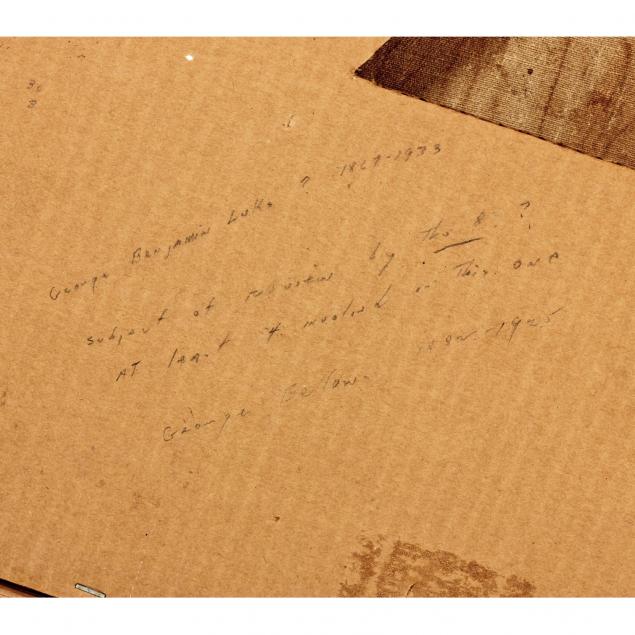 36
8
George Benjamin Luks ? 1867-1933
subject of by The 8 ?
AT least 4 involved in This ONE
George Bellows 1882-1925